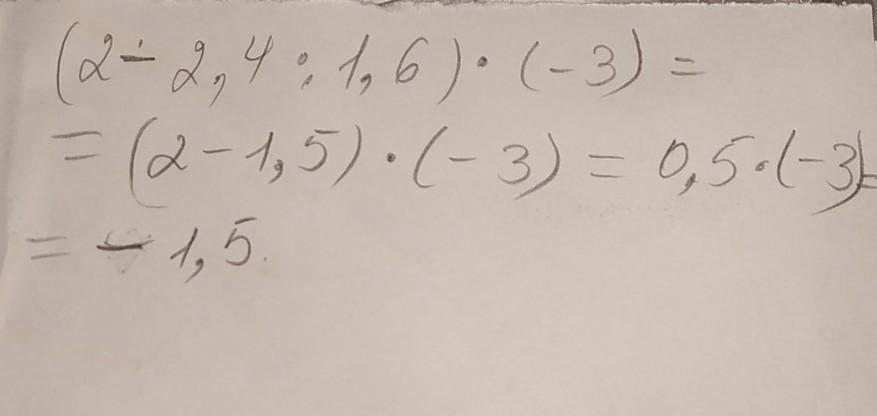 (2 - 2,4 : 1,6) · (-3) =
= (2 - 1,5) · (-3) = 0,5 · (-3) =
= - 1,5.